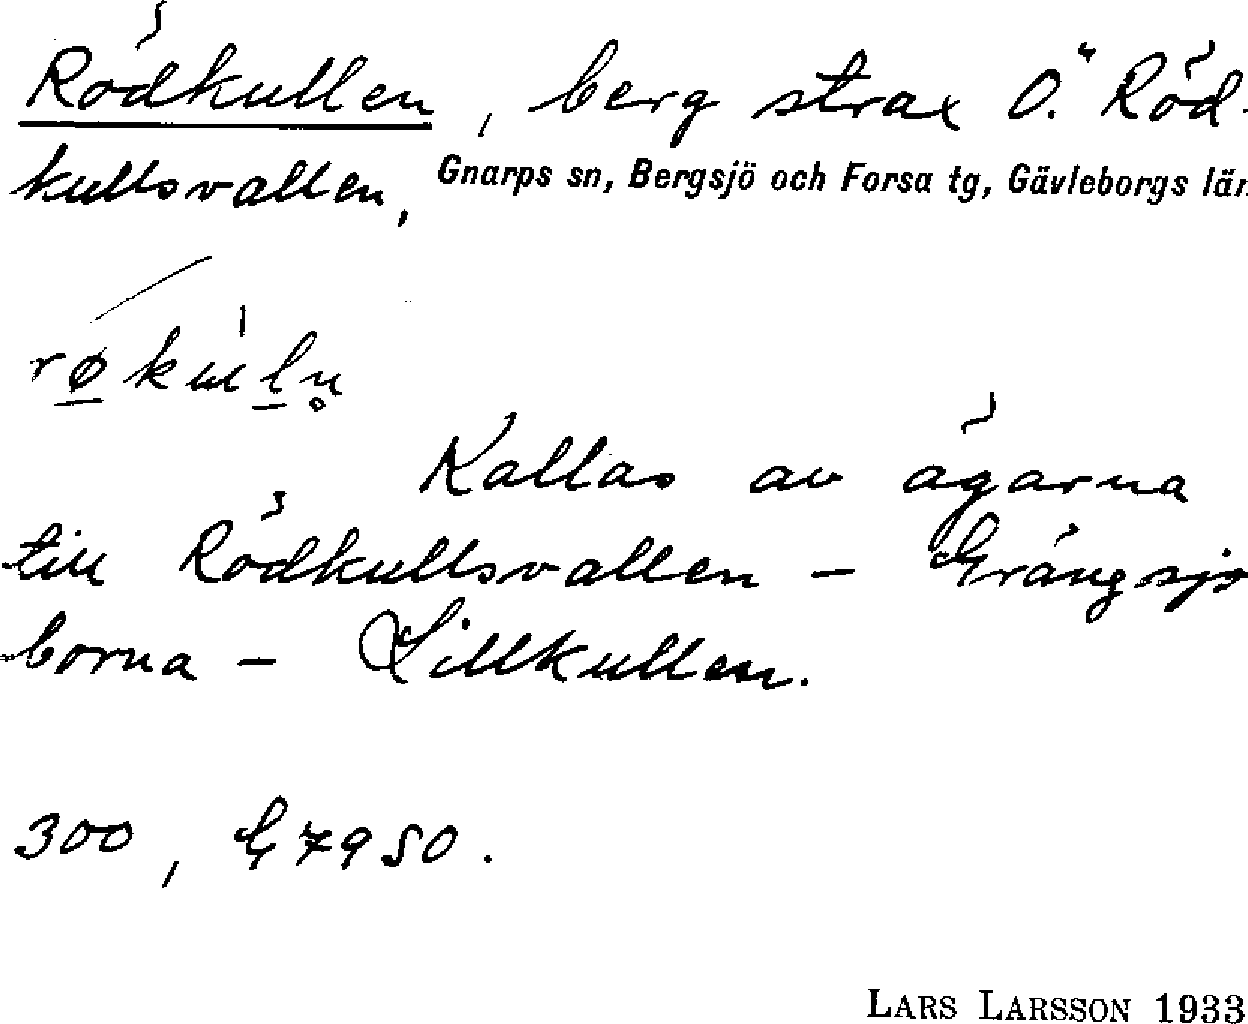 Rödkullen, berg strax Ö. Röd-
kullsvallen, Gnarps sn, Bergsjö och Forsa tg, Gävleborgs län
Kallas av ägarna
till Rödkullsvallen – Grängsjö
borna – Lillkullen.
300, G7950.
LARS LARSSON 1933